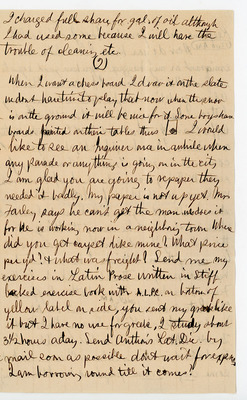 I charged full share for gal. of oil although
I had used some because I will have the
trouble of cleaning etc.
(2)
When I want a chess board I draw it on the slate
but now when the snow
is on the ground it will be nice for it Some boys have
boards painted on their tables thus I would
like to see an Inquirer once in a while when
any parade or anything is going on in the city
I am glad you are going to repaper they
needed it badly. My paper is not up yet. Mr
Farley says he can't get the man
he is working now in a neighboring town Where
did you get carpet like mine? What price
per yd? & what was freight? Send me my
exercises in Latin Prose written in stiff
backed exercise book with A.L.P.C. on bottom of
yellow label on side, you sent my greek like
it but I have no use for greek, I study about
3½ hours a day. Send Anthon's Lat. Dic. by
mail soon as possible don't wait for express
I am borrowing round till it comes.